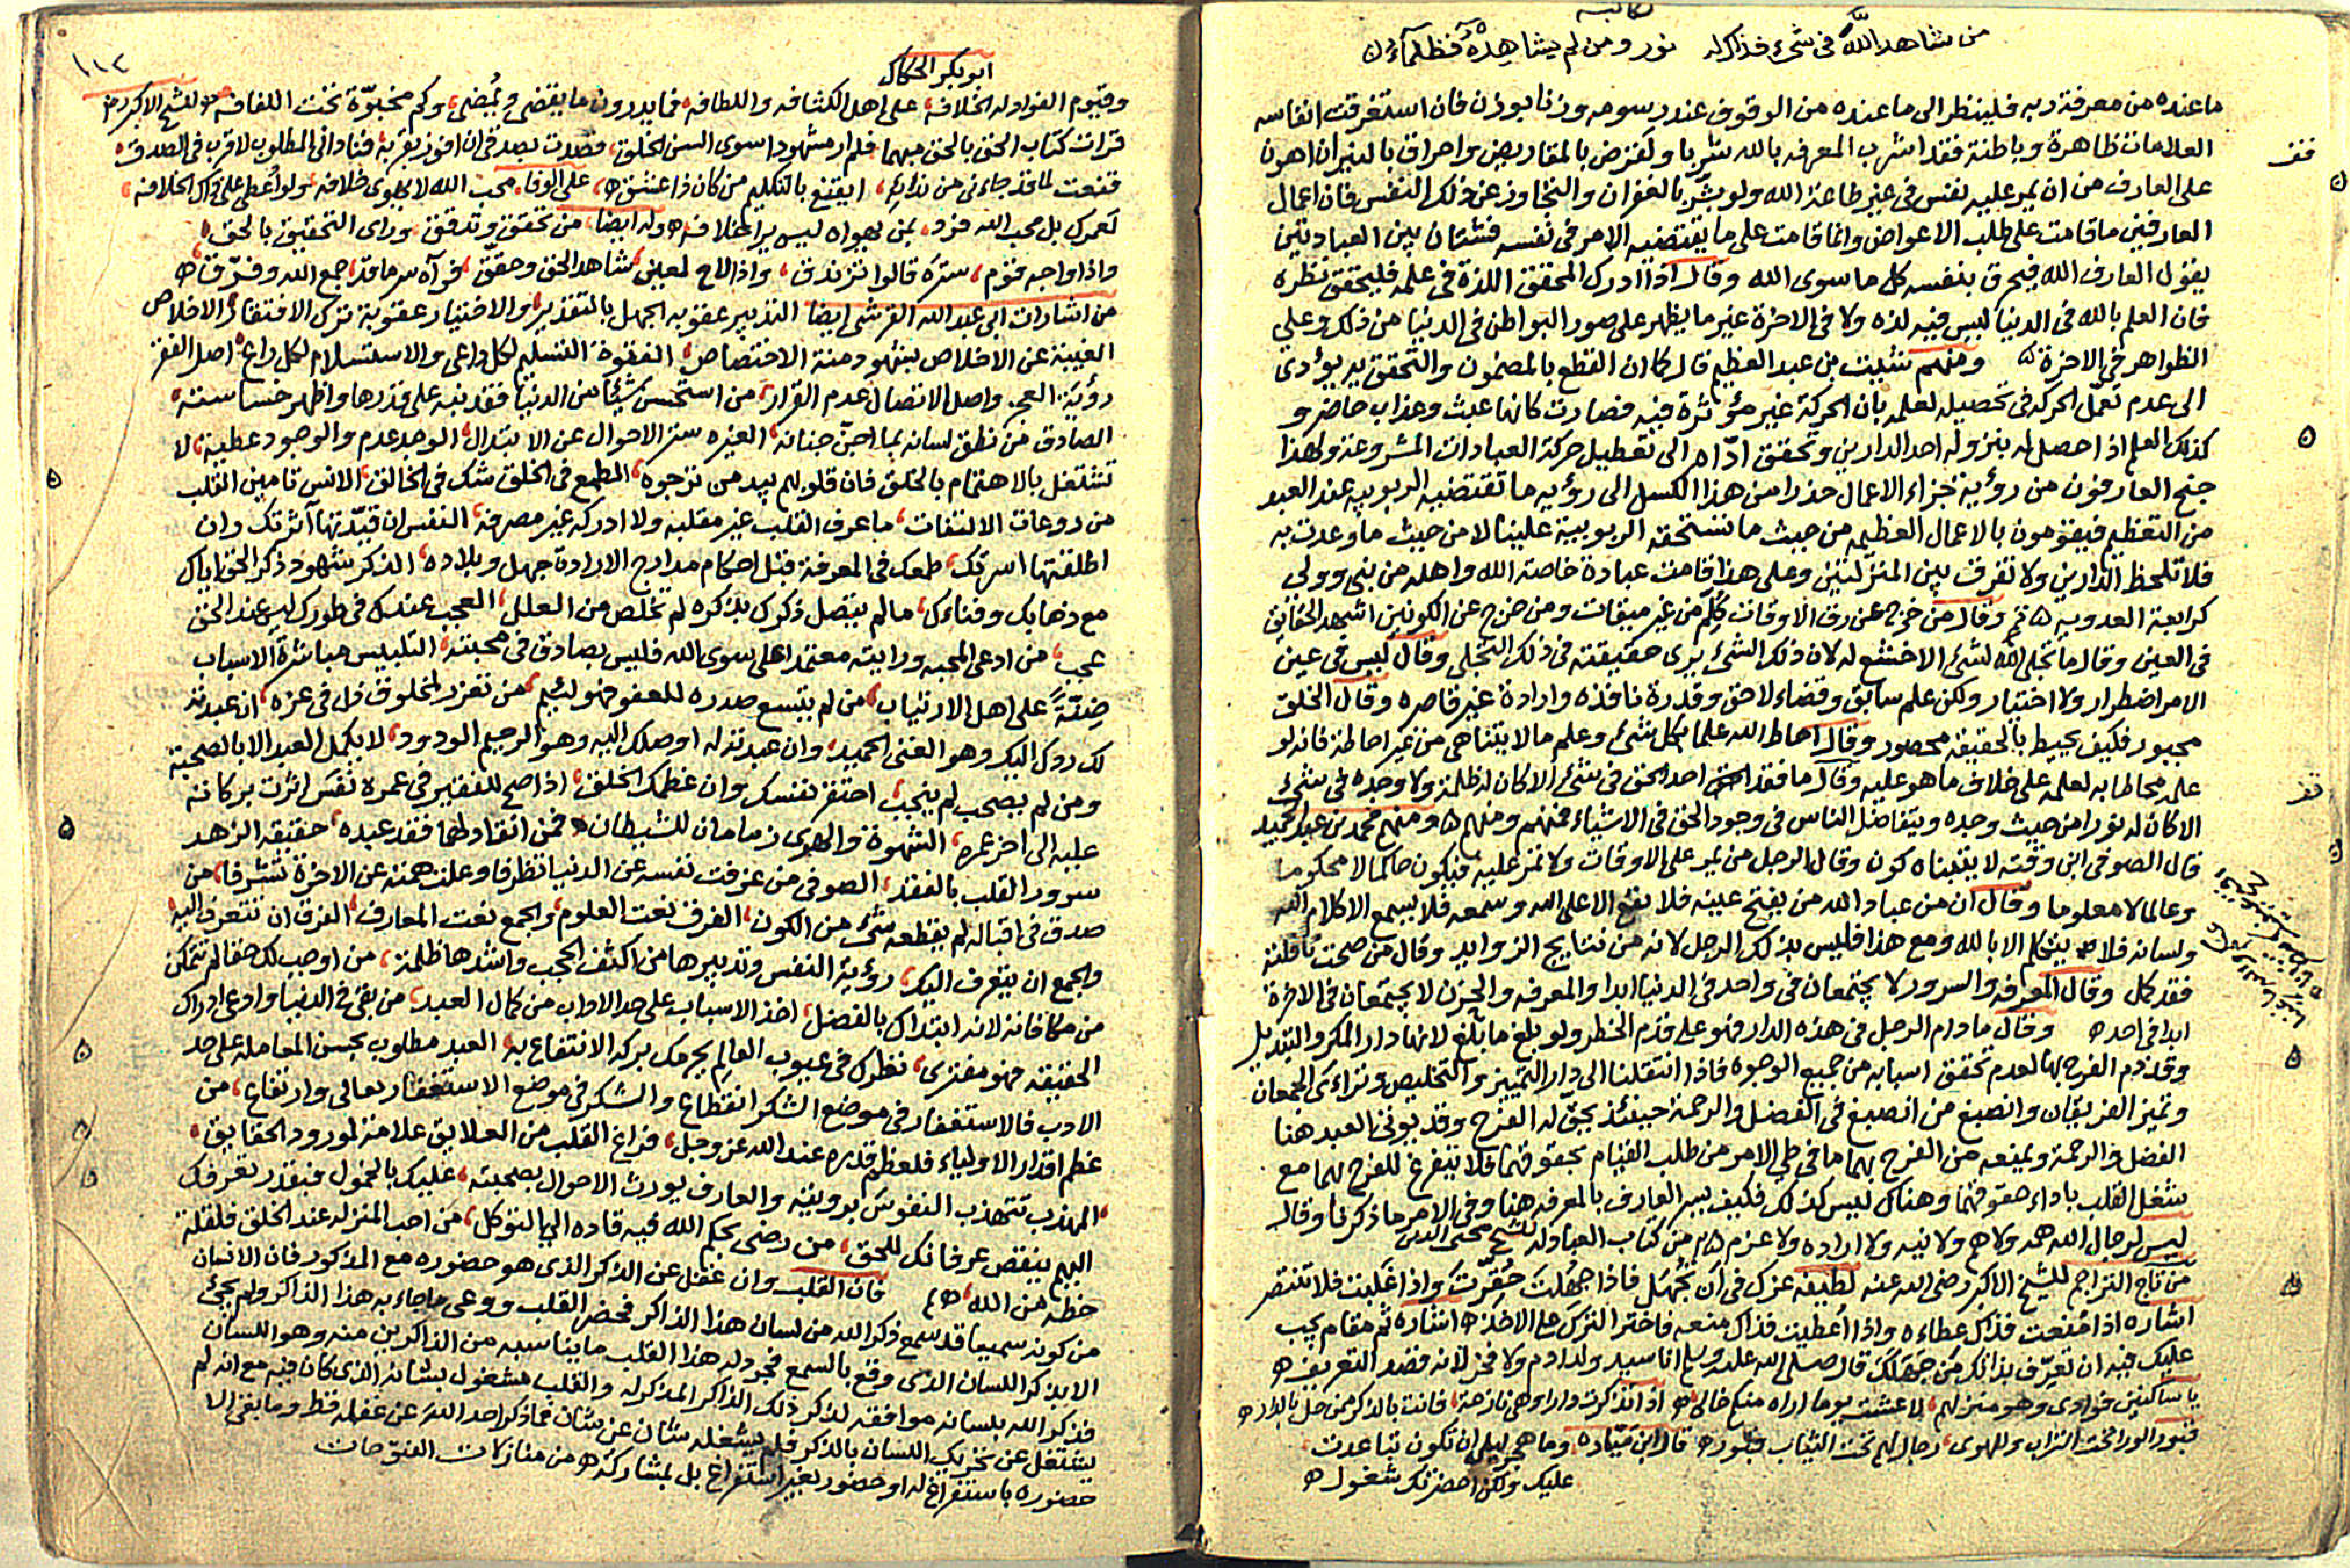 لكاتبه
من شاهد الله في شيء فذاك له نور ومن لم يشاهده فظلماء
ما عنده من معرفة ربه فلينظر الى ما عنده من الوقوف عند رسومه وزنا بوزن فان استغرقت انفاسه
العلامات ظاهرة وباطنة فقد اشرب المعرفة بالله شربا ولقرض بالمقاريض واحراق بالنيران اهون
على العارف من ان يمر عليه نفس في غير طاعة الله ولو بشر بالغفران والتجاوز عن ذلك النفس فان اعمال
العارفين ما قامت على طلب الاعواض وانما قامت على ما يقتضيه الامر في نفسه فشتان بين العبادتين
يقول العارف الله فيحرق بنفسه كل ما سوى الله وقال اذا ادرك المحقق اللذة في علمه فليحقق نظره
فان العلم بالله في الدنيا ليس فيه لذه ولا في الاخرة غير ما يظهر على صور البواطن في الدنيا من ذلك وعلى
الظواهر في الاخرة ومنهم بن عبد العظيم قال كان القطع بالمضمون والتحقق به يؤدي
الى عدم تعمل الحركة في تحصيله لعلمه بان الحركة غير مؤثرة فيه فصارت كانها عبث وعذاب حاضر و
كذلك العلم اذا حصل له بنزوله احد الدارين وتحقق اداه الى تعطيل حركة العبادات المشروعة ولهذا
جنح العارفون من رؤية جزاء الاعمال حذرا من هذا الكسل الى رؤية ما تقتضيه الربوبيه عند العبد
من التعظيم فيقومون بالاعمال العظيمه من حيث ما تستحقه الربوبية علينا لا من حيث ما وعدت به
فلا تلحظ الدارين ولا تفرق بين المنزلتين وعلى هذا قامت عبادة خاصة الله واهله من نبي وولي
كرابعة العدويه وقال من خرج عن رق الاوقات كلم من غير ميقات ومن خرج عن الكونين اشهد الحقايق
في العين وقال ما تجلى الله لشيء الا خشع له لان ذلك الشيء يرى حقيقته في ذلك التجلي وقال ليس في عين
الامر اضطرار ولا اختيار ولكن علم سابق وقضاء لاحق وقدرة نافذه وارادة غير قاصره وقال الخلق
مجبور فكيف يحيط بالحقيقة محصور وقال احاط الله علما بكل شيء وعلم ما لا يتناهى من غير احاطة فانه لو
علمه محاطا به لعلمه على خلاف ما هو عليه وقال ما فقد احد الحق في شيء الا كان له ظلمة ولا وجده في شيء
الا كان له نورا من حيث وجده ويتفاضل الناس في وجود الحق في الاشياء فمنهم ومنهم ومنهم محمد بن عبد المجيد
قال الصوفي ابن وقته لا يتلبناه كون وقال الرجل من يمر على الاوقات ولا تمر عليه فيكون حاكما لا محكوما
وعالما لا معلوما وقال ان من عباد الله من يفتح عينه فلا تقع الا على الله وسمعه فلا يسمع الا كلام الله
ولسانه فلا يتكلم الا بالله ومع هذا فليس بذلك الرجل لانه من نتايج الزوايد وقال من صحت نافلته
فقد كمل وقال المعرفه والسرور لا يجتمعان في واحد في الدنيا ابدا والمعرفه والحزن لا يجتمعان في الاخرة
ابدا في احد وقال ما دام الرجل في هذه الدار فهو على قدم الخطر ولو بلغ ما بلغ لانها دار المكر والتبديل
وقد ذم الفرح بها لعدم تحقق اسبابه من جميع الوجوه فاذا انتقلنا الى دار التمييز والتخليص وتراءى الجمعان
وتميز الفريقان وانصبغ من انصبغ في الفضل والرحمة حينئذ يحق له الفرح وقد يوفى العبد هنا
الفضل والرحمة ويمنعه من الفرح بهما ما في طي الامر من طلب القيام بحقوقهما فلا يتفرغ للفرح بهما مع
شغل القلب باداء حقوقهما وهناك ليس كذلك فكيف يسر العارف بالمعرفه هنا وفي الامر ما ذكرنا وقال
ليس لرجال الله همه ولا هم ولا نيه ولا اراده ولا عزم من كتاب العبادله للشيخ محيى الدين
من تاج التراجم للشيخ الاكبر رضى الله عنه لطيفه عزك في ان تجهل فاذا جهلت حقرت واذا غلبت فلا تنتصر
اشاره اذا منعت فذاك عطاءه واذا اعطيت فذاك منعه فاختر الترك على الاخذ اشارة ثم مقام يجب
عليك فيه ان تعرف بذاتك من جهلك قال صلى الله عليه وسلم انا سيد ولد ادم ولا فخر لانه قصد التعريف
يا ساكنين فؤادي وهو منزلهم لا عشت يوما اراه منكم خالي اذا انذكرت دارا وهي نازحة فانت بالذكر ممن حل بالدار
قبور الورا تحت التراب وللهوى رجال لهم تحت الثياب قبور قال ابن ميادة وما هجر ليلى ان تكون تباعدت
عليك ولكن احضرتك شغول
١١٢
ابو بكر الحكاك
وقيوم الفؤاد له الخلافة على اهل الكثافه واللطافه فما يدرون ما يقضى ويمضى وكم مخبوة تحت اللفافه للشيخ الاكبر رضه
قرات كتاب الحق بالحق مبهما فلم ار مشهودا سوى السن الخلق فصدت بصدق ان افوز بقربه فنادانى المطلوب لا قرب في الصدق
قنعت لما قد جاءنى من ندايه ايقنع بالتكليم من كان ذا عشق على الوفا محب الله لا يهوى خلافه ولو اعطى على ذاك الخلافه
لعمرك بل محب الله فرد بمن يهواه ليس يرا خلافه وله ايضا من تحقق وتدقق وراى التحقيق بالحق
واذا واجه قوم ستره قالوا تزندق واذا لاح لعين شاهد الحق وحقق فرآه سرما قد جمع الله وفرق
من اشارات ابي عبد الله القرشى ايضا التدبير عقوبه الجهل بالتقدير والاختيار عقوبة ترك الافتقار الاخلاص
الغيبة عن الاخلاص بشهود منة الاختصاص الفتوة التسليم لكل داعى والاستسلام لكل داع اصل الفقر
رؤية العجز واصل الاتصال عدم القرار من استحسن شيئا من الدنيا فقد نبه على قدرها واظهر خساسته
الصادق من نطق لسانه بما اجن جنانه الغيره ستر الاحوال عن الابتذال الوجد عدم والوجود عطية لا
تشتغل بالاهتمام بالخلق فان قلوبهم بيد من ترجوه الطمع في الخلق شك في الخالق الانس تامين القلب
من روعات الالتفات ما عرف القلب غير مقلبه ولا ادركه غير مصرفه النفس ان قيدتها آثرتك وان
اطلقتها اسرتك طمعك في المعرفة قبل احكام مدارج الارادة جهل وبلاده الذكر شهود ذكر الحق اياك
مع ذهابك وفناءك ما لم يتصل ذكرك بذكره لم تخلص من العلل العجب عندك في طورك ليس عند الحق
عجب من ادعى المحبه ورايته معتمدا على سوى الله فليس بصادق في محبته التلبيس مباشرة الاسباب
ضنة على اهل الارتياب من لم يتسع صدره للعفو فهو لئيم من تعزز لمخلوق ذل في عزه ان عبدته
لك ردك اليك وهو الغنى الحميد وان عبدته له اوصلك اليه وهو الرحيم الودود لا يكمل العبد الا بالصحبة
ومن لم يصحب لم ينجب احتقر نفسك وان عظمك الخلق اذا صح للفقير في عمره نفس اثرت بركاته
عليه الى اخر عمره الشهوة والهوى زمامان للشيطان فمن انقاد لهما فقد عبده حقيقه الزهد
سرور القلب بالفقد الصوفي من عزفت نفسه عن الدنيا تظرفا وعلت همته عن الاخرة تشرفا من
صدق في اقباله لم يقطعه شيء من الكون الفرق نعت العلوم والجمع نعت المعارف الفرق ان تتعرف اليه
والجمع ان يتعرف اليك رؤية النفس وتدبيرها من اكثف الحجب واشدها ظلمة من اوجب لك حقا لم تتمكن
من مكافاته لانه ابتداك بالفضل اخذ الاسباب على حد الاداب من كمال العبد من بقى في الدنيا وادعى ادراك
الحقيقه فهو مفترى نظرك في عيوب العالم يحرمك بركه الانتفاع به العبد مطلوب بحسن المعامله على حد
الادب فالاستغفار في موضع الشكر انقطاع والشكر في موضع الاستغفار تعالى وارتفاع من
عظم اقدار الاولياء فلعظم قدره عند الله عز وجل فراغ القلب من العلايق علامة لورود الحقايق
المهذب تتهذب النفوس برويته والعارف يورث الاحوال بصحبته عليك بالخمول فبقدر تعرفك
اليهم ينقص عرفانك للحق من رضى بحكم الله فيه قاده الى التوكل من احب المنزله عند الخلق فلقلة
حظه من الله فان القلب وان غفل عن الذكر الذى هو حضوره مع المذكور فان الانسان
من كونه سميعا قد سمع ذكر الله من لسان هذا الذاكر فحضر القلب ووعى ما جاء به هذا الذاكر ولم يجئ
الا بذكر اللسان الذى وقع بالسمع فجرد له هذا القلب ما يناسبه من الذاكرين منه وهو اللسان
فذكر الله بلسانه موافقه لذكر ذلك الذاكر المذكر له والقلب مشغول بشانه الذى كان فيه مع انه لم
يشتغل عن تحريك اللسان بالذكر فلم يشغله شان عن شان فما ذكر احد الله عن غفله قط وما بقى الا
حضوره باستفراغ له او حضور بغير استفراغ بل بمشاركة من منازلات الفتوحات